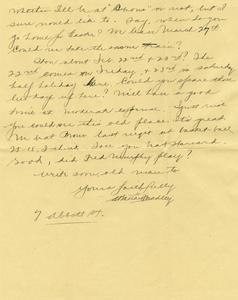 whether I'll be at "Prom" or not, but I
sure would like to. Say, when do you
go home for Easter? We leave March 27th
Could we take the same train?
How about Feb. 22nd & 23rd? The
22nd comes on Friday, & 23rd is Saturday
half holiday. Could you spare those
two days up here? We'll have a good
time at moderate expense. Just wish
you could see this old place. It's great.
We beat Brown last night at basket ball
I think. Saw you beat Harvard.
Good, did Fred Murphy play?
Write soon, old man to
Yours faithfully
Bradley
7 Abbott St.